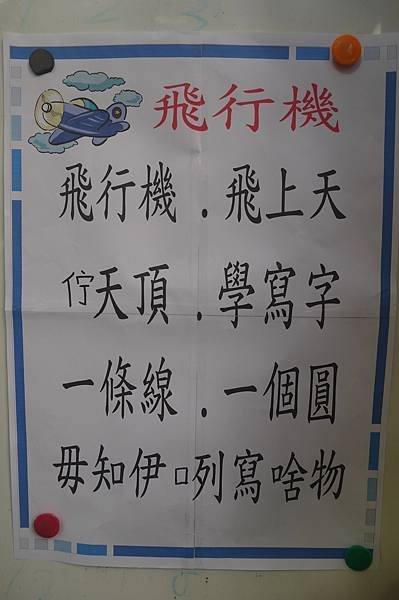 飛行機
飛行機．飛上天
佇天頂．學寫字
一條線．一個圓
毋知伊□列寫啥物